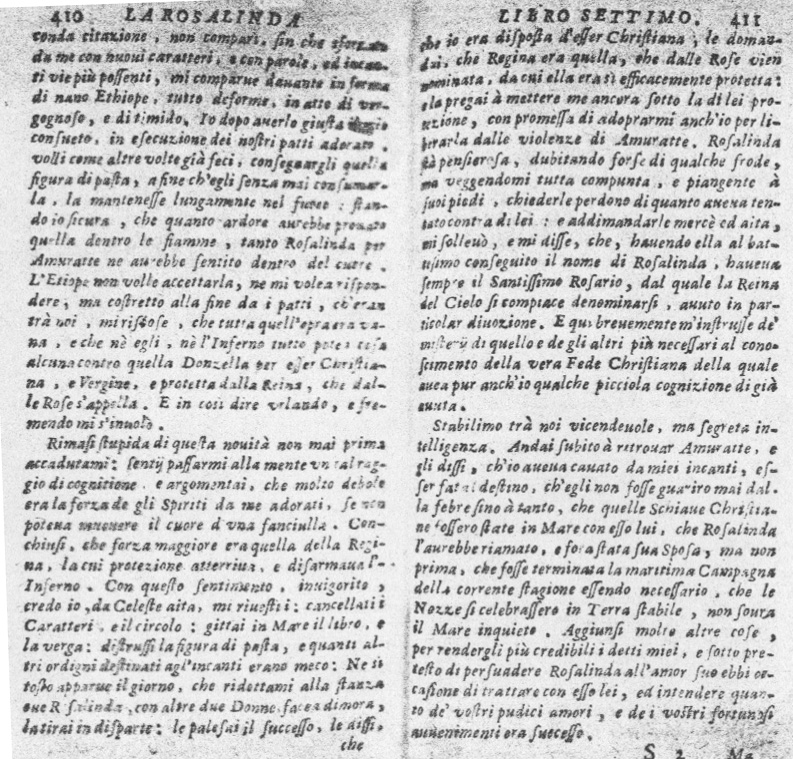 410 LA ROSALINDA
conda citazione, non compari, sin che sforzato
da me con nuoui caratteri, e con parole, ed incan-
ti vie più possenti, mi comparue dauante in forma
di nano Ethiope, tutto deforme, in atto di ver-
gognoso, e di timido. Io dopo auerlo giusta
consueto, in esecuzione dei nostri patti adorato.
volli come altre volte già feci, consegnargli quella
figura di pasta, a fine ch'egli senza mai consumar-
la, la mantenesse lungamente nel fuoco: stan-
do io sicura, che quanto ardore aurebbe prouato
quella dentro le fiamme, tanto Rosalinda per
Amuratte ne aurebbe sentito dentro del cuore.
L'Etiope non volle accettarla, ne mi volea rispon-
dere, ma costretto alla fine da i patti, ch'eran
trà noi, mi rispose, che tutta quell'opra era va-
na, e che nè egli, nè l'Inferno tutto potea cosa
alcuna contro quella Donzella per esser Christia-
na, e Vergine, e protetta dalla Reina, che dal-
le Rose s'appella. E in così dire vrlando, e fre-
mendo mi s'inuolò.
Rimasi stupida di questa nouità non mai prima
accadutami: sentij passarmi alla mente vn tal rag-
gio di cognitione, e argomentai, che molto debole
era la forza de gli Spiriti da me adorati, se non
poteua muouere il cuore d'vna fanciulla. Con-
chiusi, che forza maggiore era quella della Regi-
na, la cui protezione atterriua, e disarmaua l'-
Inferno. Con questo sentimento, inuigorito,
credo io, da Celeste aita, mi riuestij: cancellati i
Caratteri, e il circolo: gittai in Mare il libro, e
la verga: distrussi la figura di pasta, e quanti al-
tri ordigni destinati agl'incanti erano meco: Ne si
tosto apparue il giorno, che ridottami alla stanza
oue Rosalinda, con altre due Donne facea dimora,
la tirai in disparte: le palesai il successo, le dissi,
che
LIBRO SETTIMO. 411
che io era disposta d'esser Christiana, le doman-
dai, che Regina era quella, che dalle Rose vien
nominata, da cui ella era sì efficacemente protetta:
e la pregai à mettere me ancora sotto la di lei pro-
tezione, con promessa di adoprarmi anch'io per li-
berarla dalle violenze di Amuratte. Rosalinda
stà pensierosa, dubitando forse di qualche frode,
ma veggendomi tutta compunta, e piangente à
suoi piedi, chiederle perdono di quanto aueua ten-
tato contra di lei: e addimandarle mercè ed aita,
mi solleuò, e mi disse, che, hauendo ella al bat-
tesimo conseguito il nome di Rosalinda, haueua
sempre il Santissimo Rosario, dal quale la Reina
del Cielo si compiace denominarsi, auuto in par-
ticolar diuozione. E qui breuemente m'instrusse de'
misterij di quello e de gli altri più necessari al cono-
scimento della vera Fede Christiana della quale
auea pur anch'io qualche picciola cognizione di già
auuta.
Stabilimo trà noi vicendeuole, ma segreta in-
telligenza. Andai subito à retrouar Amuratte, e
gli dissi, ch'io aueua cauato da miei incanti, es-
ser fatal destino, ch'egli non fosse guariro mai dal-
la febre sino à tanto, che quelle Schiaue Christia-
ne fossero state in Mare con esso lui, che Rosalinda
l'aurebbe riamato, e fora stata sua Sposa, ma non
prima, che fosse terminata la maritima Campagna
della corrente stagione essendo necessario, che le
Nozze si celebrassero in Terra stabile, non soura
il Mare inquieto. Aggiunsi molte altre cose,
per rendergli più credibili i detti miei, e sotto pre-
testo di persuadere Rosalinda all'amor suo ebbi oc-
casione di trattare con esso lei, ed intendere quan-
to de' vostri pudici amori, e de i vostri fortunosi
auuenimenti era successo.
S 2 Ma